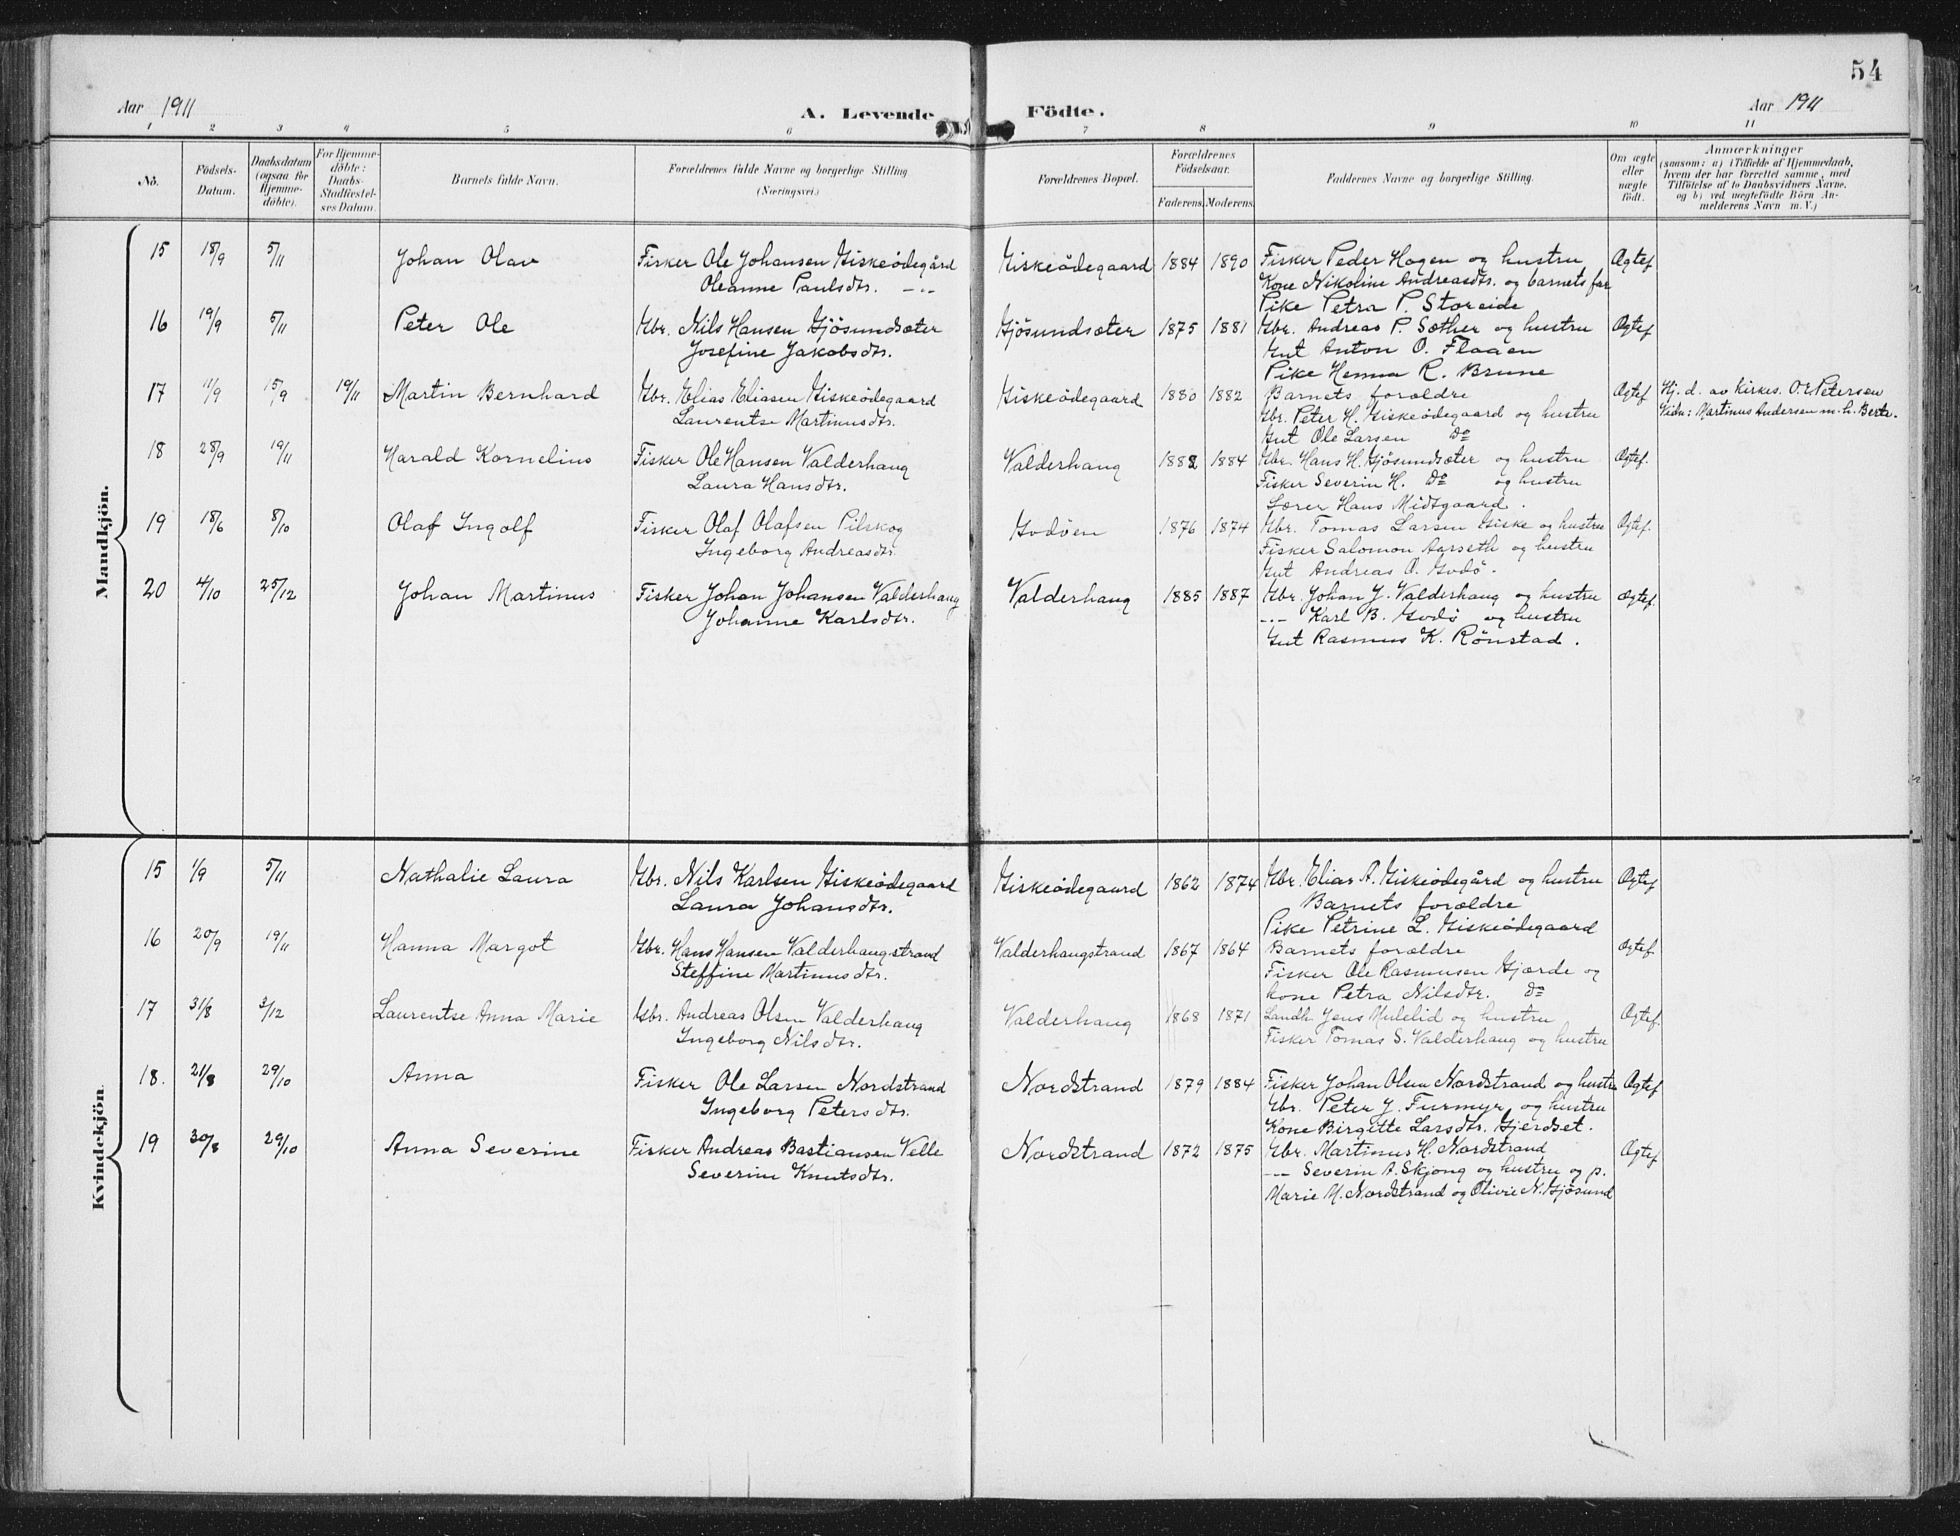 54
Aar 1911 A. Levende Födte. Aar 1911
1 2 3 4 5 6 7 8 9 10 11
No. Födsels-Datum. Daabsdatum (ogsaa for Hjemme-döbte). For Hjemme-döbte: Daabs-Stadfæstel-ses Datum. Barnets fulde Navn. Forældrenes fulde Navne og borgerlige Stilling (Næringsvei.) Forældrenes Bopæl. Forældrenes Födselsaar. Faderens. Moderens. Faddernes Navne og borgerlige Stilling. Om ægte eller uægte födt. Anmærkninger (saasom: a) i Tilfælde af Hjemmedaab, hvem der har forrettet samme, med Tilföielse af to Daabsvidners Navne, og b) ved uægtefödte Börn An-melderens Navn m. V.)
Mandkjön.
15 18/9 5/11 Johan Olav Fisker Ole Johansen Giskeödegård Giskeödegaard 1884 1890 Fisker Peder Hagen og hustru Ægtef
Oleanne Paulsdtr. -„- Kone Nikoline Andreasdtr. og barnets far
Pike Petra P. Storeide
16 19/9 5/11 Peter Ole Gbr. Nils Hansen Gjösundsæter Gjösundsæter 1875 1881 Gbr. Andreas P. Sæther og hustru Ægtef
Josefine Jakobsdtr. Gut Anton O. Flaaen
Pike Henna R. Brune
17 11/9 15/9 19/11 Martin Bernhard Gbr. Elias Eliasen Giskeödegaard Giskeödegaard 1880 1882 Barnets forældre Ægtef Hj. d. av Kirkes. O. E. Petersen
Laurentse Martinusdtr. Gbr. Peter H. Giskeödegaard og hustru Vidn: Martinus Andersen m. h. Berte.
Gut Ole Larsen do
18 28/9 19/11 Harald Kornelius Fisker Ole Hansen Valderhaug Valderhaug 1882 1884 Gbr. Hans H. Gjösundsæter og hustru Ægtef.
Laura Hansdtr. Fisker Severin H. do og hustru
Lærer Hans Midtgaard.
19 18/6 8/10 Olaf Ingolf Fisker Olaf Olafsen Pilskog Godöen 1876 1874 Gbr. Tomas Larsen Giske og hustru Ægtef.
Ingeborg Andreasdtr. Fisker Salomon Aarseth og hustru
Gut Andreas O. Godö.
20 4/10 25/12 Johan Martinus Fisker Johan Johansen Valderhaug Valderhaug 1885 1887 Gbr. Johan J. Valderhaug og hustru ægtef.
Johanne Karlsdtr. -„- Karl B. Godö og hustru
Gut Rasmus K. Rönstad.
Kvindekjön.
15 1/9 5/11 Nathalie Laura Gbr. Nils Karlsen Giskeödegaard Giskeödegaard 1862 1874 Gbr. Elias A. Giskeödegård og hustru Ægtef
Laura Johansdtr. Barnets forældre
Pike Petrine L. Giskeödegaard
16 20/9 19/11 Hanna Margot Gbr. Hans Hansen Valderhaugstrand Valderhaugstrand 1867 1864 Barnets forældre Ægtef
Steffine Martinusdtr. Fisker Ole Rasmusen Gjærde og
kone Petra Nilsdtr. do
17 31/8 3/12 Laurentse Anna Marie Gbr. Andreas Olsen Valderhaug Valderhaug 1868 1871 Landh. Jens Mulelid og hustru Ægtef.
Ingeborg Nilsdtr. Fisker Tomas S. Valderhaug og hustru
18. 21/8 29/10 Anna Fisker Ole Larsen Nordstrand Nordstrand 1879 1884 Fisker Johan Olsen Nordstrand og hustru Ægtef
Ingeborg Petersdtr. Gbr. Peter J. Furmyr og hustru
Kone Birgitte Larsdtr. Gjerdset.
19 30/8 29/10 Anna Severine Fisker Andreas Bastiansen Velle Nordstrand 1872 1875 Gbr. Martinus H. Nordstrand Ægtef
Severine Knutsdtr. -„- Severin A. Skjong og hustru og p.
Marie M. Nordstrand og Olivie N. Gjösund